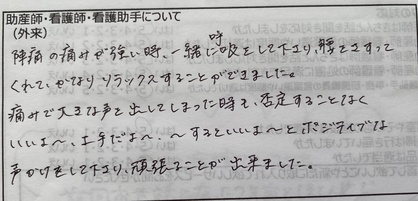 助産師・看護師・看護助手について
(外来)
陣痛の痛みが強い時、一緒に呼吸をして下さり、腰をさすって
くれて、かなりリラックスすることができました。
痛みで大きな声を出してしまった時も、否定することなく
いいよ〜、上手だよ〜、〜するといいよ〜とポジティブな
声かけをして下さり、頑張ることが出来ました。